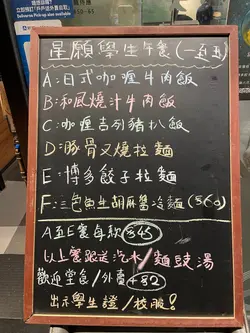 星願學生午餐(一至五)
A:日式咖喱牛肉飯
B:和風燒汁牛肉飯
C:咖喱吉列豬扒飯
D:豚骨叉燒拉麵
E:博多餃子拉麵
F:三色魚生胡麻醬冷麵($60)
A至E餐每款 $45
以上餐跟送汽水/麵豉湯
歡迎堂食/外賣+$2
出示學生證/校服!